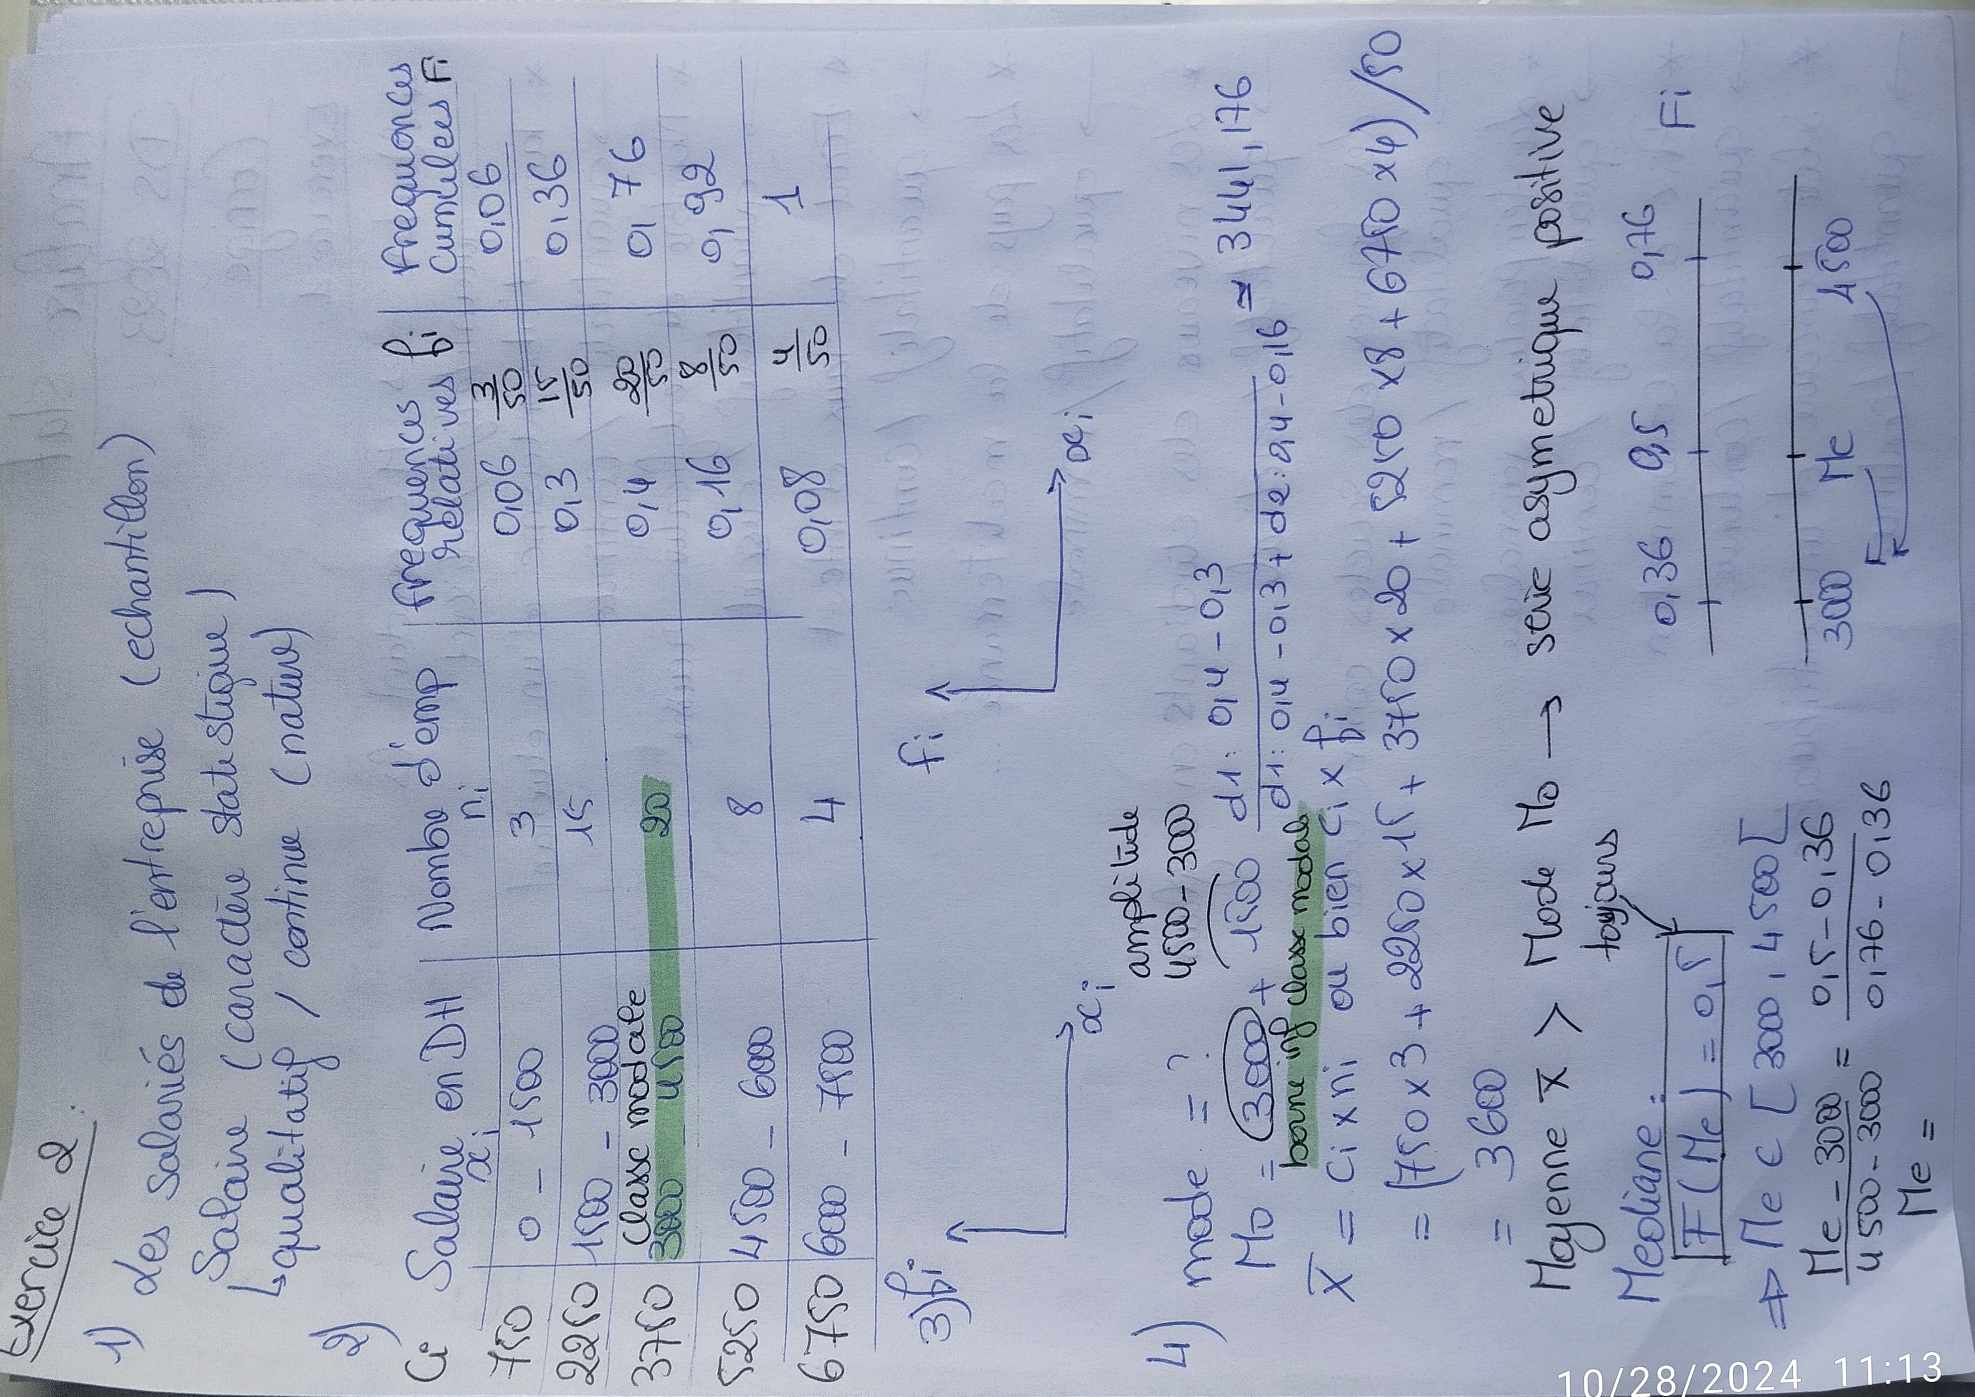 Exercice 2.
1) Les salariés de l'entreprise (echantillon)
Salaire (caractère statistique)
↳ qualitatif / continue (nature)
2)
Ci | Salaire en DH xi | Nombre d'emp ni | frequences relatives fi | Frequences cumulees Fi
750 | 0 - 1500 | 3 | 0,06 3/50 | 0,06
2250 | 1500 - 3000 | 15 | 0,3 15/50 | 0,36
classe modale
3750 | 3000 - 4500 | 20 | 0,4 20/50 | 0,76
5250 | 4500 - 6000 | 8 | 0,16 8/50 | 0,92
6750 | 6000 - 7500 | 4 | 0,08 4/50 | 1
3) fi
xi
Fi
xi
amplitude
4500-3000
4) mode = ?
Mo = 3000 + 1500 (d1: 0,4 - 0,3) / (d1: 0,4 - 0,3 + d2: 0,4 - 0,16) ≃ 3441,176
borne inf classe modale
X̄ = Ci x ni ou bien Ci x fi
= (750 x 3 + 2250 x 15 + 3750 x 20 + 5250 x 8 + 6750 x 4) / 50
= 3600
Moyenne x̄ > Mode Mo → serie asymetrique positive
toujours
Mediane :
F(Me) = 0,5
⇒ Me ∈ [3000, 4500[
(Me - 3000) / (4500 - 3000) = (0,5 - 0,36) / (0,76 - 0,36)
Me =
0,36 0,5 0,76 Fi
3000 Me 4500
10/28/2024 11:13